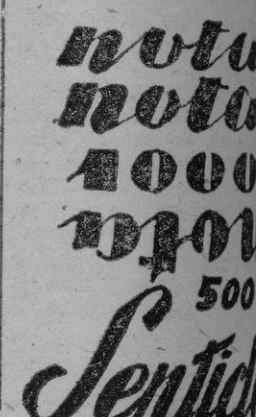 nota
nota
1000
nota
500
Sentid